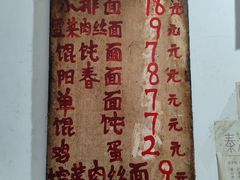 排面 18元
菜肉丝面 9元
馄饨面 7元
阳春面 8元
单面 7元
馄饨 7元
鸡蛋 2元
菜肉丝面 9元
秦